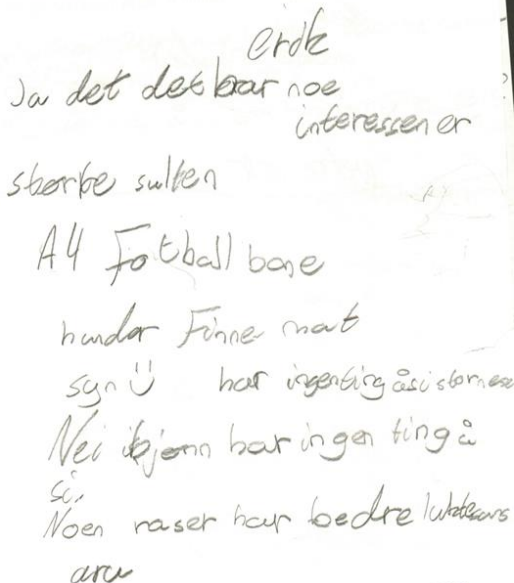 erik
Ja det det har noe
interessen er
størke sulten
A4 Fotball bane
hunder Finne mat
syn ü har ingenting å si størnese
Nei kjønn har ingen ting å
si.
Noen raser har bedre luktesans